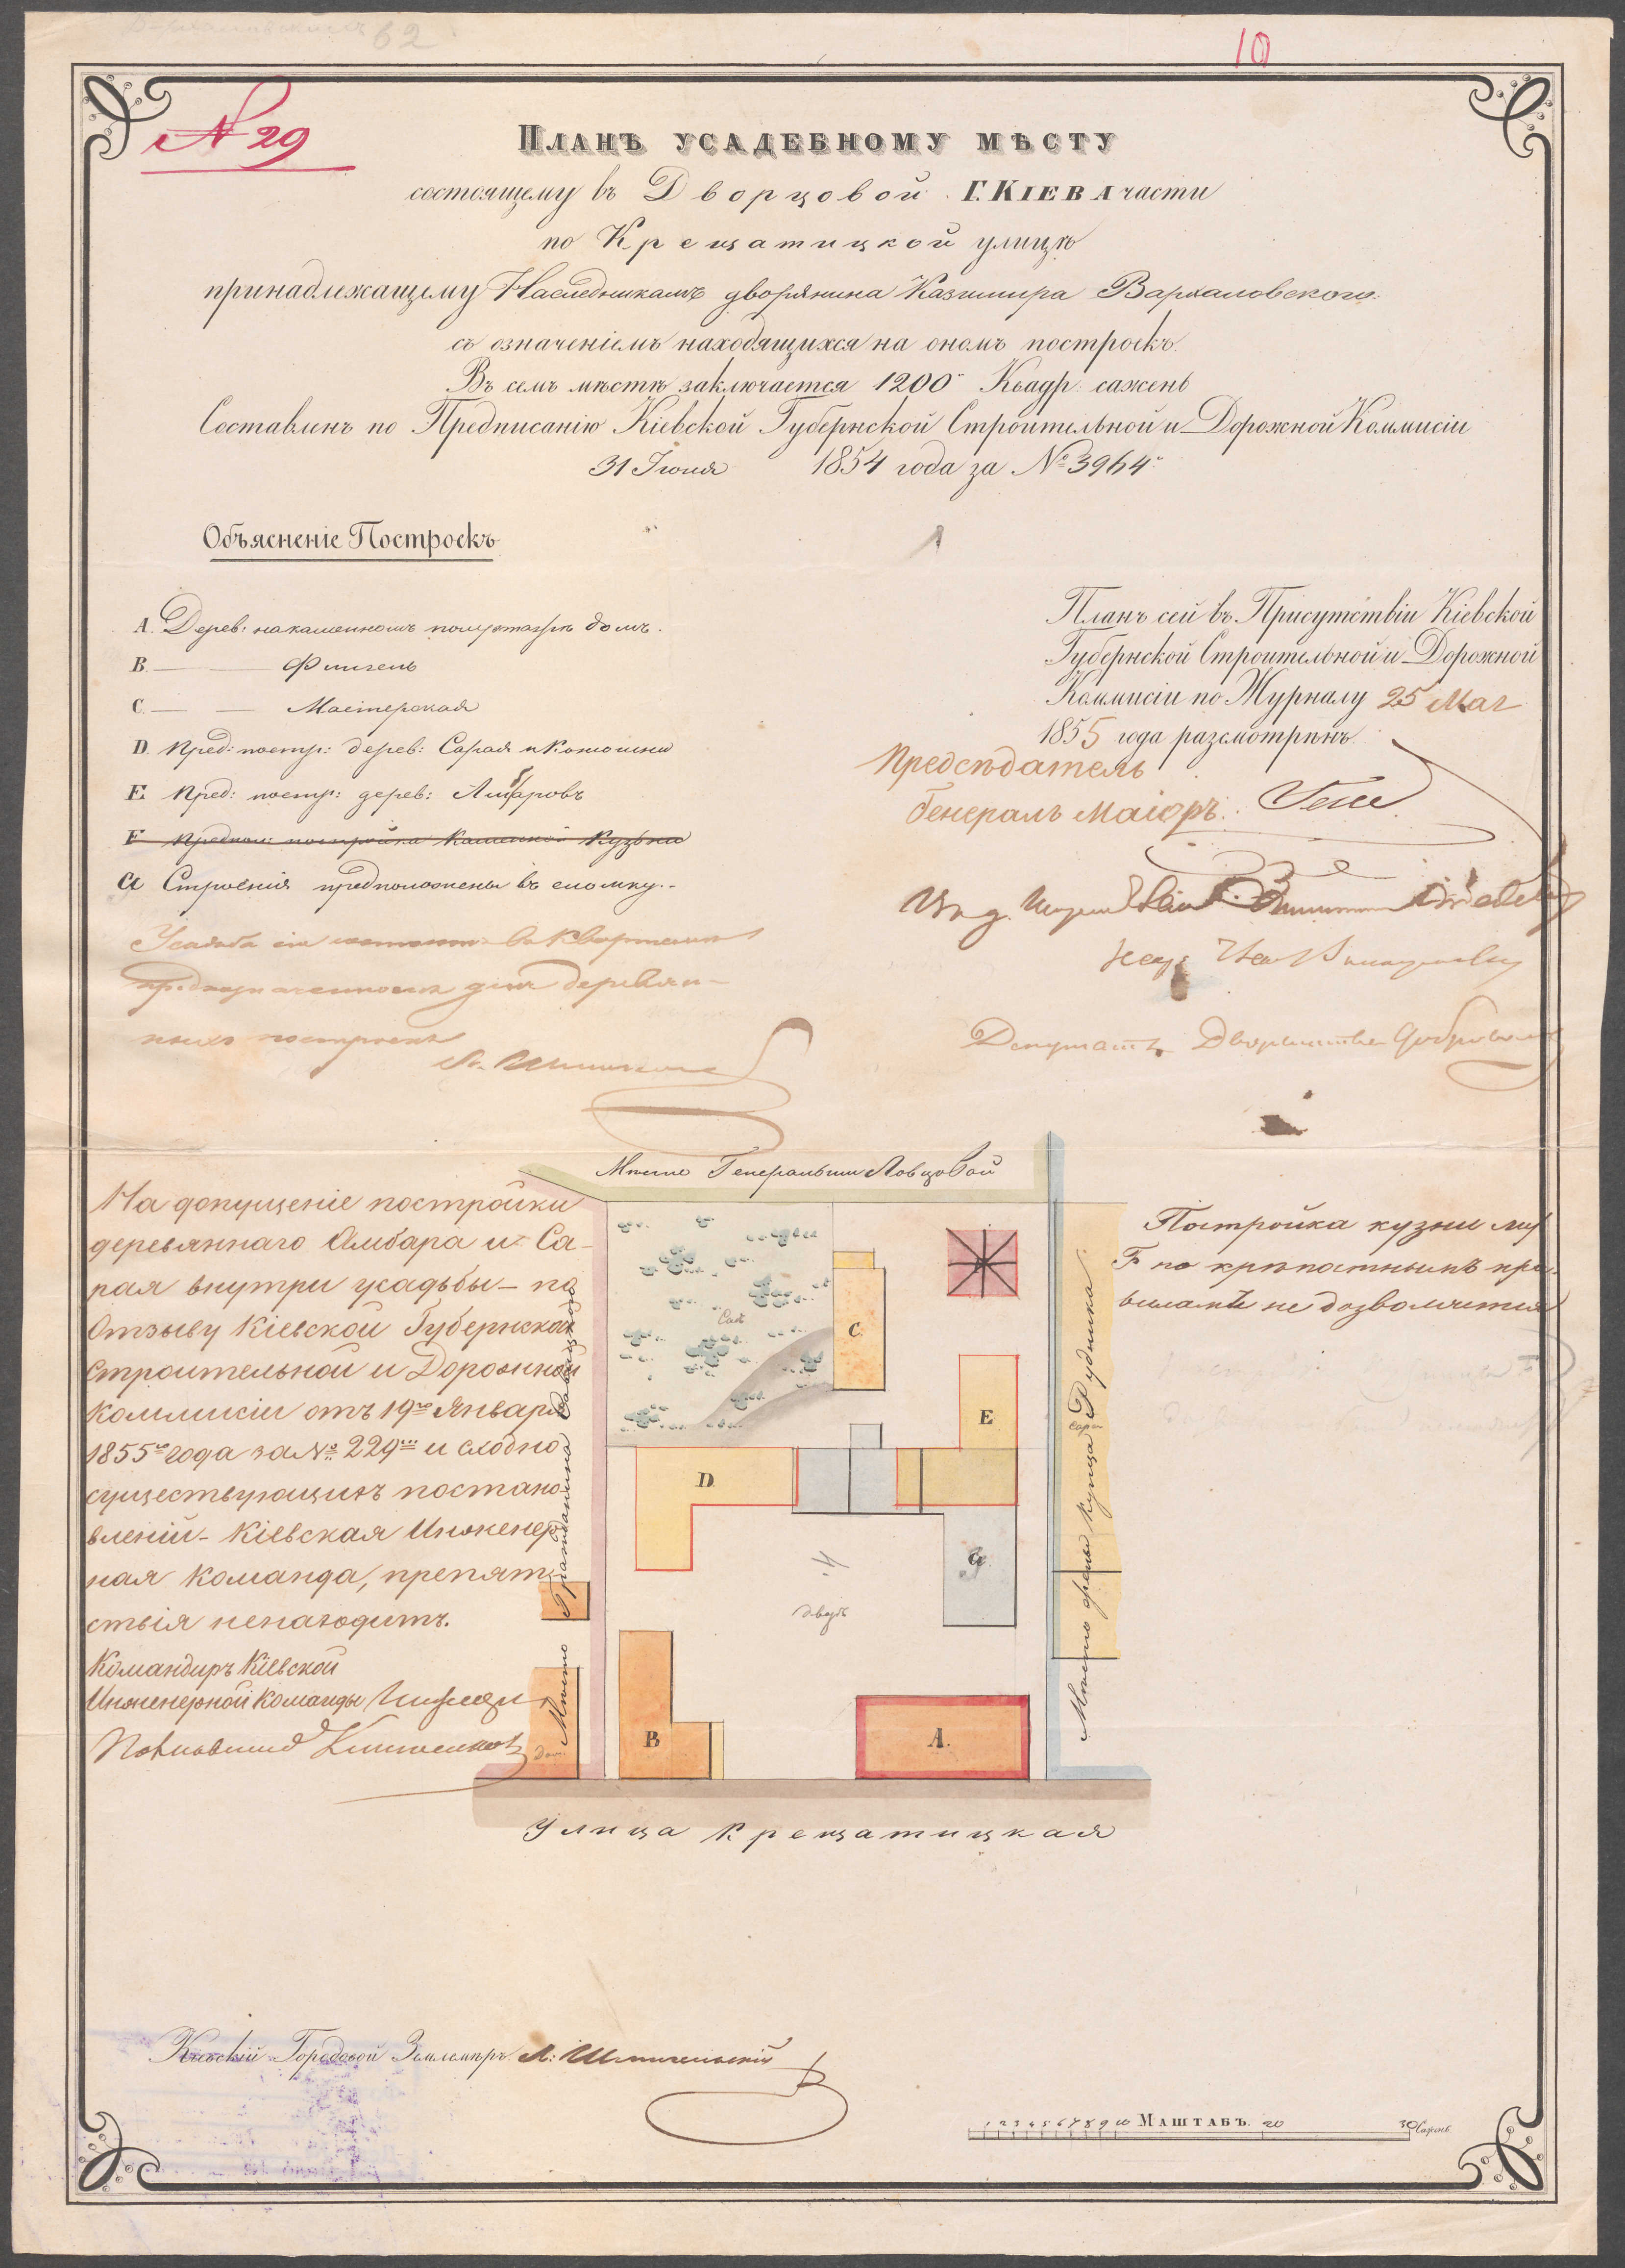 62
10
№ 29
Планъ усадебному мѣсту
состоящему въ Дворцовой Г. Кіева части
по Крещатицкой улицѣ
принадлежащему Наследникамъ дворянина Казимира Вархаловского.
съ означеніемъ находящихся на ономъ построекъ.
Въ семъ мѣстѣ заключается 1200 Квадр: сажень
Составленъ по Предписанію Кіевской Губернской Строительной и Дорожной Коммисіи
31 Іюля 1854 года за № 3964
Объясненіе Построекъ
A. Дерев: на каменномъ полуэтажѣ домъ.
B. — Флигель
C. — — Мастерская
D. Пред: постр: дерев: Сарая и Конюшни
E. Пред: постр: дерев: Амбаровъ
F Предпол: постройка Каменной Кузьни
G Строенія предположены въ сломку.
Усадьба сія состоитъ въ Кварталѣ
предназначенномъ для деревян-
ныхъ построекъ
Планъ сей въ Присутствіи Кіевской
Губернской Строительной и Дорожной
Коммисіи по Журналу 25 Мая
1855 года разсмотрѣнъ.
Предсѣдатель
Генералъ Маіоръ
Депутатъ Дворянства
Мѣсто Генеральши Ловцовой
На допущеніе постройки
деревяннаго Амбара и Са-
рая внутри усадьбы – по
Отзыву Кіевской Губернской
Строительной и Дорожной
Коммисіи отъ 19го Января
1855го года за № 229м и сходно
существующихъ постано-
вленій – Кіевская Инженер-
ная Команда, препят-
ствія ненаходитъ.
Командиръ Кіевской
Инженерной Команды
Постройка кузни лит
F по крѣпостнымъ пра-
виламъ не дозволяется
Садъ
C.
E
D.
G.
дворъ
B
A.
Сарай
Дом.
Мѣсто Гражданина
Мѣсто жены купца Рудника.
Улица Крещатицкая
Кіевскій Городовой Землемѣръ Л:
1 2 3 4 5 6 7 8 9 10 Маштабъ. 20 30 Сажень